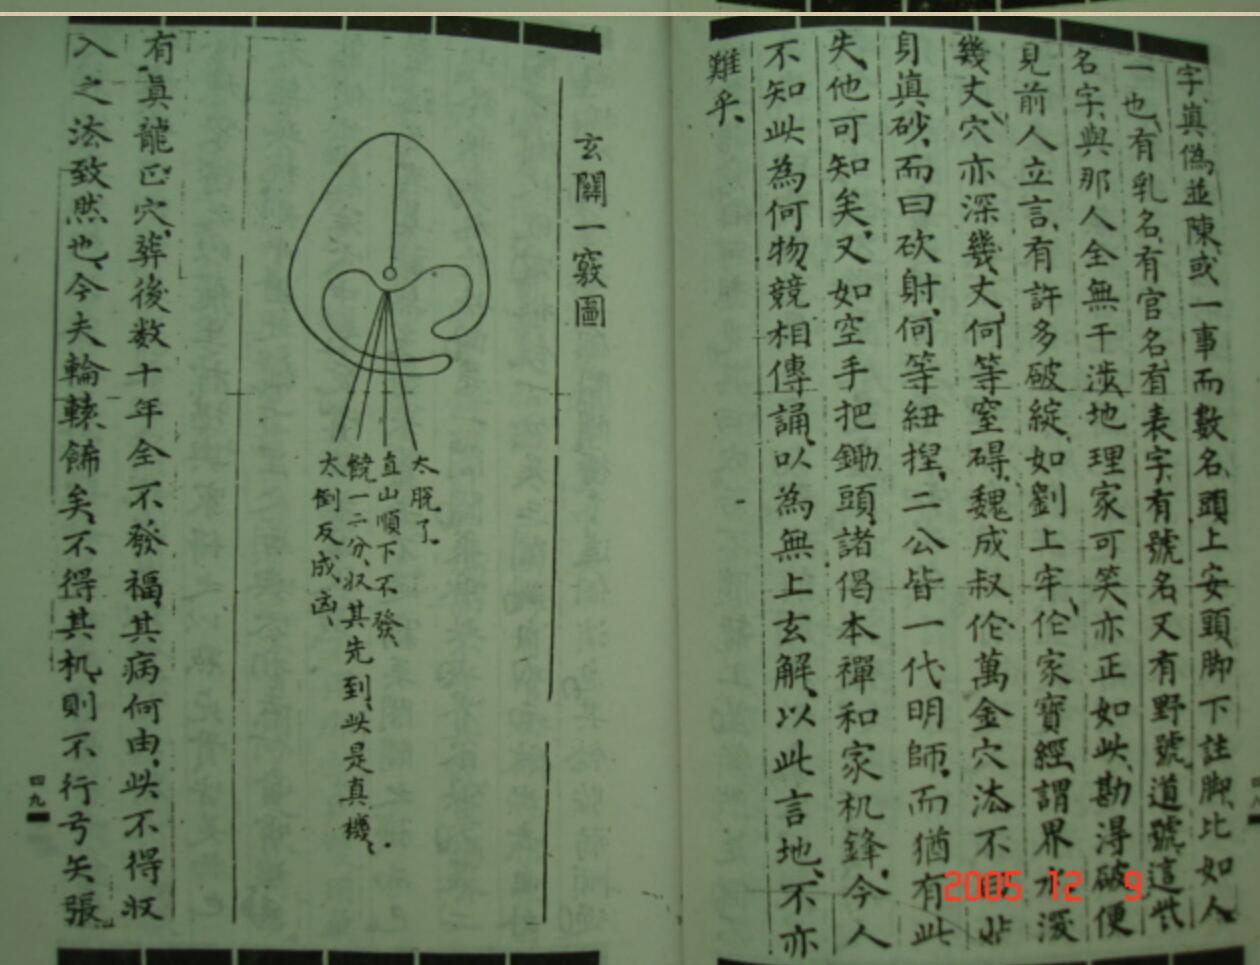 字、真偽並陳、或一事而數名、頭上安頭、脚下註脚、比如人
一也、有乳名、有官名、有表字、有號名、又有野號、道號、這些
名字、與那人全無干涉、地理家可笑、亦正如此、勘得破、便
見前人立言、有許多破綻、如劉上牢作家寶經、謂界水深
幾丈、穴亦深幾丈、何等窒碍、魏成叔作萬金穴法、不
身真砂、而曰砍射、何等紐揑、二公皆一代明師、而猶有此
失、他可知矣、又如空手把鋤頭、諸偈本禪和家机鋒、今人
不知此為何物、競相傳誦、以為無上玄解、以此言地、不亦
難乎、
玄關一竅圖
太脫了、
直山順下不發、
饒一二分、収其先到、此是真機、
太倒反成凶、
有真龍正穴、葬後数十年全不發福、其病何由、此不得収
入之法致然也、今夫輪轅餙矣、不得其机、則不行、弓矢張、
四九
2005 12 9